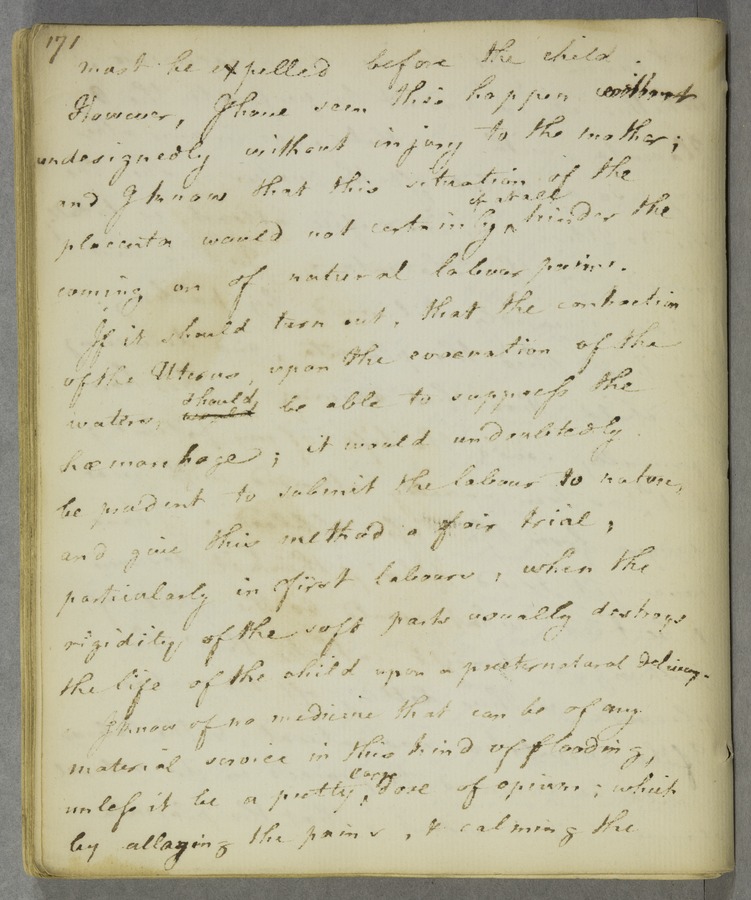 171
must be expelled before the child.
However, I have seen this happen without
undesignedly without injury to the mother;
and I know that this situation of the
at all
placenta would not certainly ^ hinder the
coming on of natural labour pains.
If it should turn out, that the contraction
of the Uterus, upon the evacuation of the
should
waters, would be able to suppress the
hæmorrhage; it would undoubtedly
be prudent to submit the labour to nature,
and give this method a fair trial;
particularly in first labours, when the
rigidity of the soft parts usually destroys
the life of the child upon a preternatural delivery.
I know of no medicine that can be of any
material service in this kind of flooding,
large
unless it be a pretty ^ dose of opium; which
by allaying the pains, & calming the